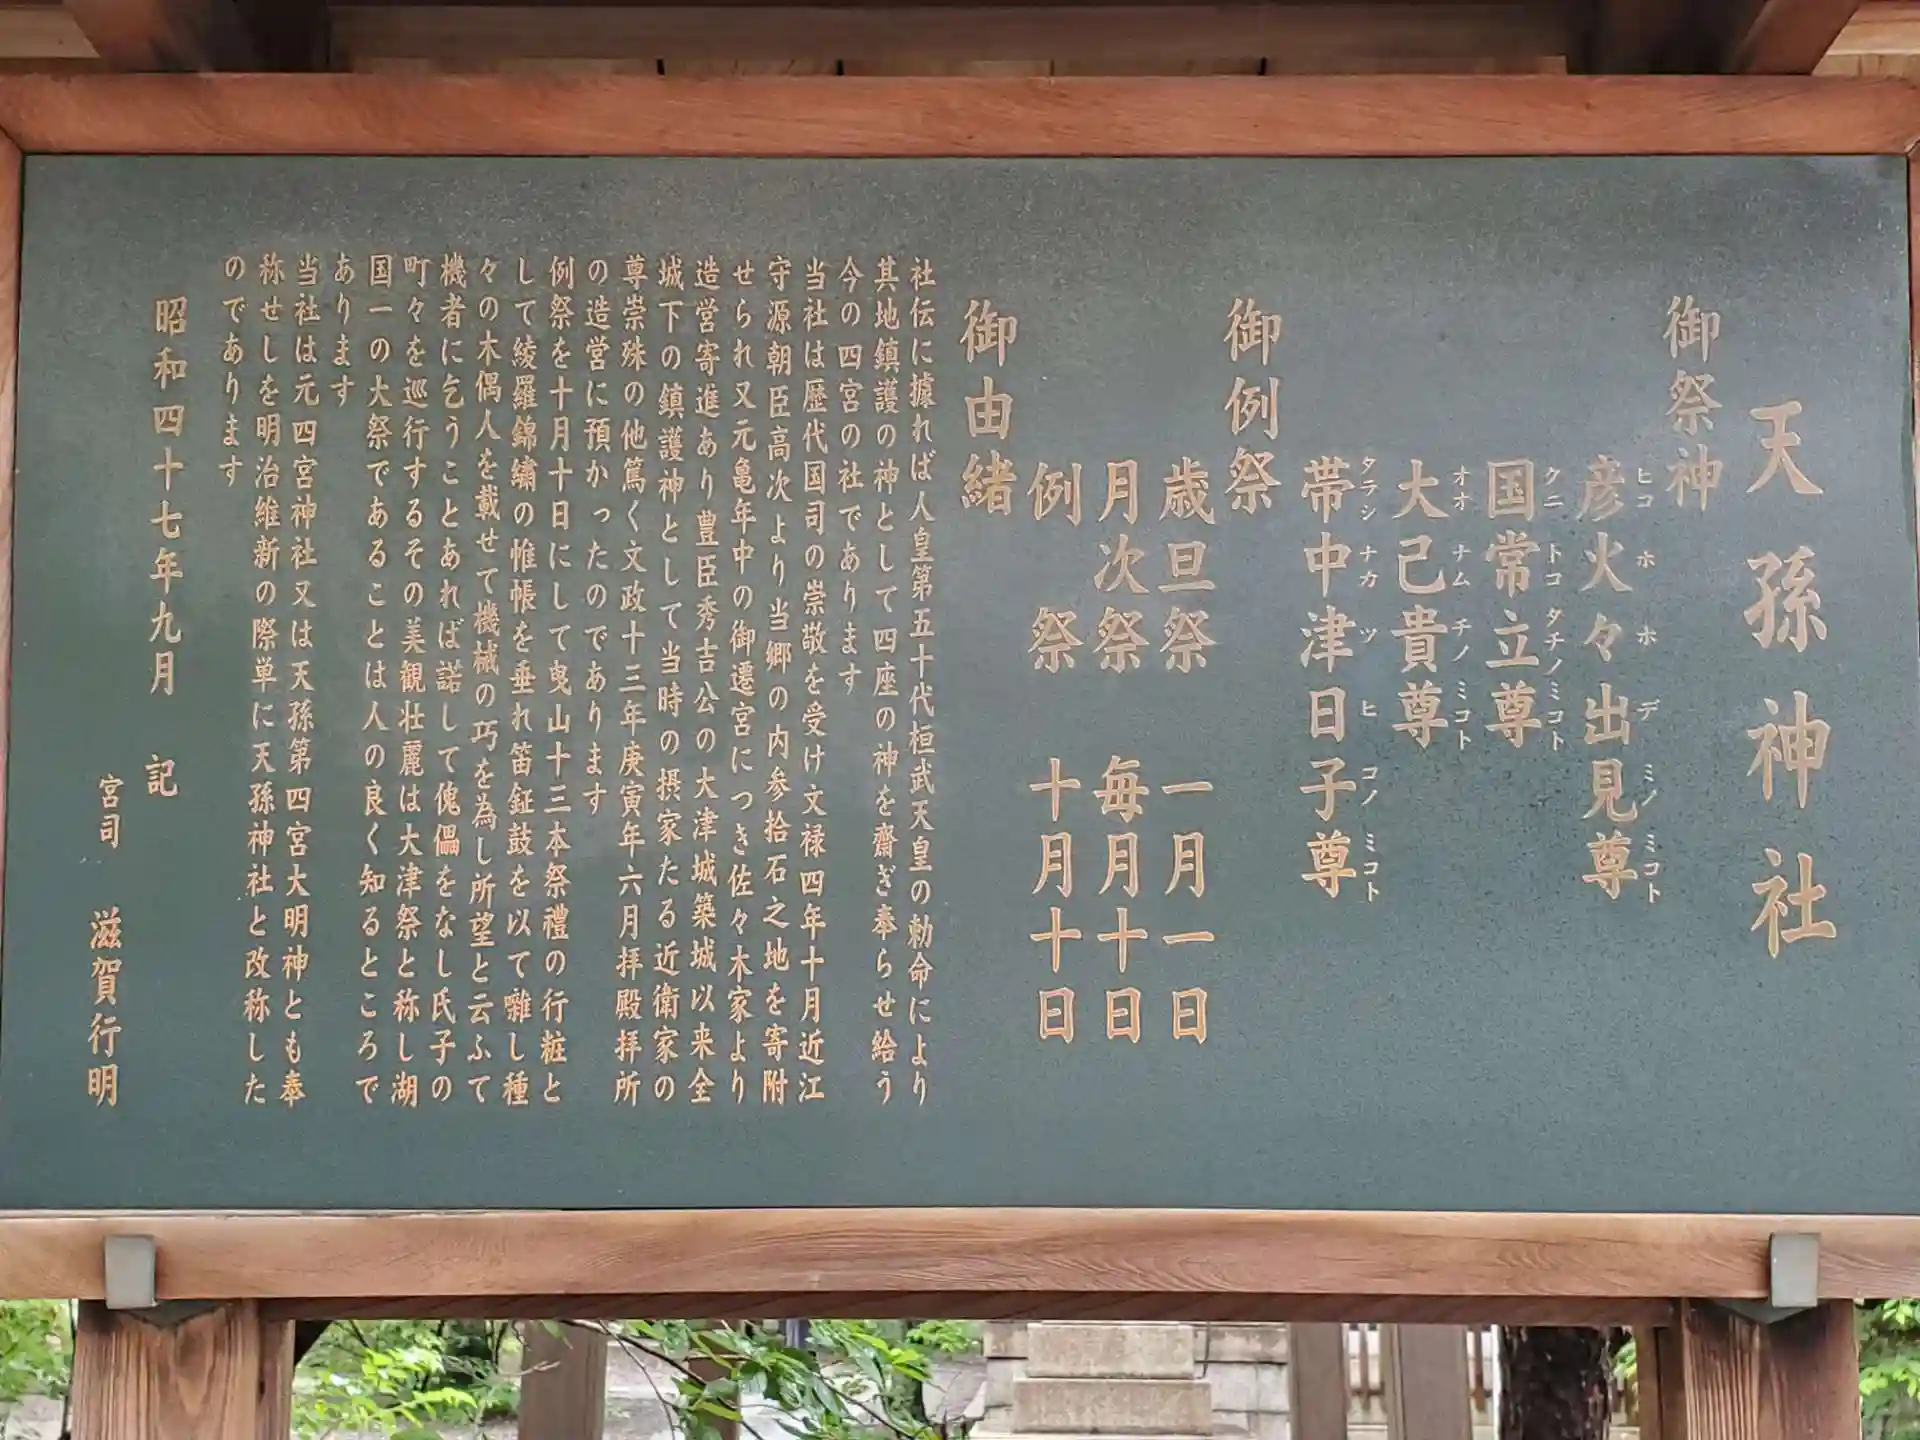 天孫神社
御祭神
彦火々出見尊
ヒコ ホ ホ デ ミノ ミコト
国常立尊
クニ トコ タチノ ミコト
大己貴尊
オオ ナム チノ ミコト
帯中津日子尊
タラシ ナカ ツ ヒ コノ ミコト
御例祭
歳旦祭 一月一日
月次祭 毎月十日
例祭 十月十日
御由緒
社伝に據れば人皇第五十代桓武天皇の勅命により
其地鎮護の神として四座の神を齋ぎ奉らせ給う
今の四宮の社であります
当社は歴代国司の崇敬を受け文禄四年十月近江
守源朝臣高次より当郷の内参拾石之地を寄附
せられ又元亀年中の御遷宮につき佐々木家より
造営寄進あり豊臣秀吉公の大津城築城以来全
城下の鎮護神として当時の摂家たる近衛家の
尊崇殊の他篤く文政十三年庚寅年六月拝殿拝所
の造営に預かったのであります
例祭を十月十日にして曳山十三本祭禮の行粧と
して綾羅錦繍の帷帳を垂れ笛鉦鼓を以て囃し種
々の木偶人を載せて機械の巧を為し所望と云ふて
機者に乞うことあれば諾して傀儡をなし氏子の
町々を巡行するその美観壮麗は大津祭と称し湖
国一の大祭であることは人の良く知るところで
あります
当社は元四宮神社又は天孫第四宮大明神とも奉
称せしを明治維新の際単に天孫神社と改称した
のであります
昭和四十七年九月 記
宮司 滋賀行明